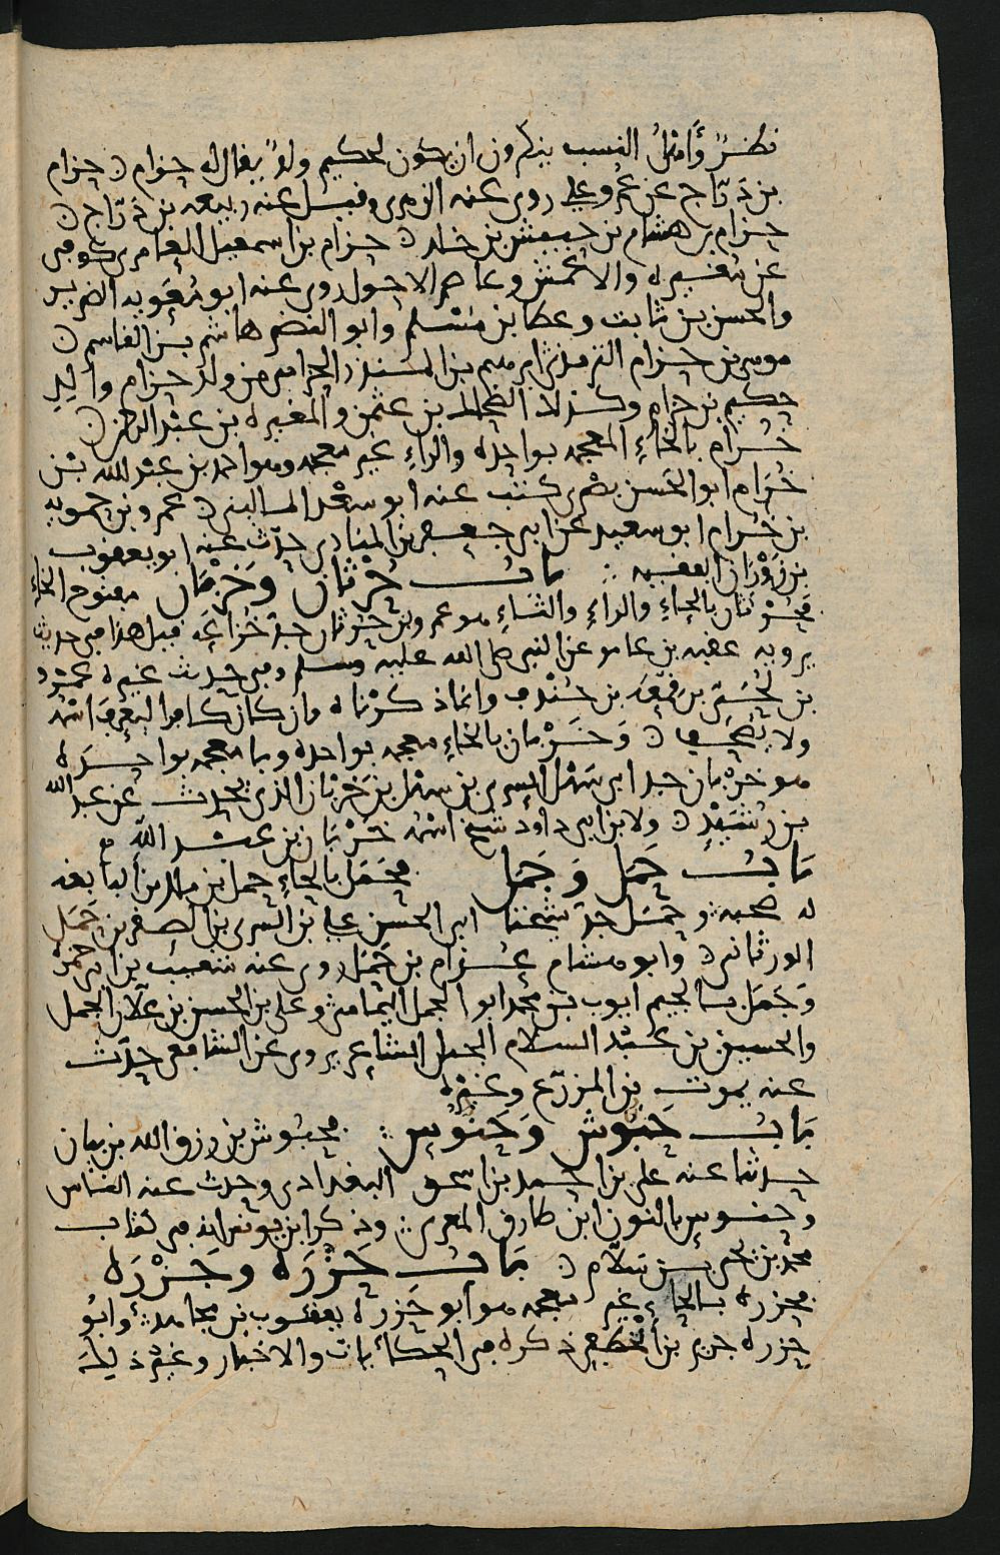 نظر وأهل النسب ينكرون ان يكون لحكيم ولد يقال له حزام ۞ حزام
بن دَرّاج عن عمر وعلي روى عنه الزهري وقيل عنه ربيعه بن دَرّاج ۞
حزام بن هشام بن حبيش بن خلد ۞ حزام بن اسمعيل العامري كوفي
عن مغيره والاعمش وعاصم الاحول روى عنه ابو معويه الضرير
والحسن بن ثابت وعطا بن مسلم وابو النضر هاشم بن القاسم ۞
موسى بن حزام الترمذي ابرهيم بن المنذر الحزامي من ولد حزام والد
حكيم بن حزام وكذلك الضحاك بن عثمن والمغيره بن عبد الرحمن ۞
خُرام بالخاء المعجمه بواحده والراء غير معجمه وهو احمد بن عبد الله بن
خُرام ابو الحسن بصري كتب عنه ابو سعد الماليني ۞ عمرو بن حمويه
بن خرام ابو سعيد عن ابي جعفر بن المنادي حدّث عنه ابو يعقوب
بن زوران الفقيه ∴ بابـــ حُرْثان وَخَرْمان مفتوح الخاء
فحُرْثان بالحاء والراء والثاء هو عمرو بن حرثان جدّ خزاعه قيل هذا في حديث
يرويه عقبه بن عامر عن النبي صلى الله عليه وسلم وفي حديث غيره عمرو
بن لُحَيّ بن قمعه بن خندف وانما ذكرناه وان كان كافرا ليعرف اسمه
ولا يصحف ۞ وَخَرْمان بالخاء معجمه بواحده وبا معجمه بواحده
هو خربان جد ابي سهل السري بن سهل بن خربان الذي يحدث عن عبد الله
بن رُشَيْد ۞ ولابن ابي داود شيخ اسمه خَرْبان بن عبيد الله ۞
بابـــ حَمَل وَجَمل فحَمَل بالحاء حمل بن ملد بن النابغه
له صحبه وحَمَل جدّ شيخنا ابي الحسن علي بن السري بن الصقر بن حَمَل
الورثاني ۞ وابو هشام عزام بن حَمَل روى عنه شعيب بن ابي حمزه
وَجَمَل بالجيم ايوب بن محمد ابو الجمل اليمامي وعلي بن الحسن بن علان الجمل
والحسين بن عبد السلام الجمل الشاعر يروي عن الشافعي حدّث
عنه يموت بن المزرّع وغيره
بابـــ حَبّوش وَحَنّوس ∴ فحبوش بن رزق الله بن بيان
حدثنا عنه علي بن احمد بن اسحق البغدادي وحدث عنه الناس
وحنوس بالنون ابن طارق المغربي وذكر ابن يونس انه في كتاب
محمد بن يحيى بن سلام ۞ بابـــ حَزْرَه وَجَزْرَه
فحزره بالحاء غير معجمه هو ابو حَزره يعقوب بن مجاهد وابو
حزره جرير بن الخَطَفى ذكره في الحكايات والاخبار وغير ذلك